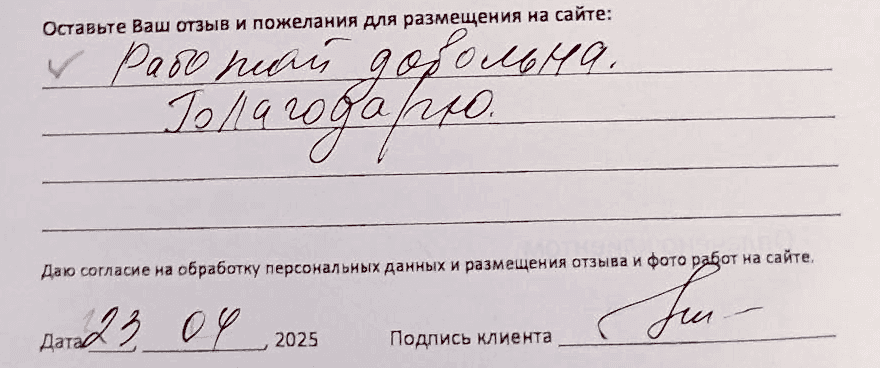 Оставьте Ваш отзыв и пожелания для размещения на сайте:
✓ Работой довольна.
Благодарю.
Даю согласие на обработку персональных данных и размещения отзыва и фото работ на сайте.
Дата 23 04, 2025 Подпись клиента